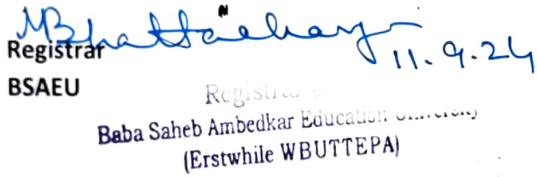 MBhattacharya
11.9.24
Registrar
BSAEU
Registrar
Baba Saheb Ambedkar Education University
(Erstwhile WBUTTEPA)